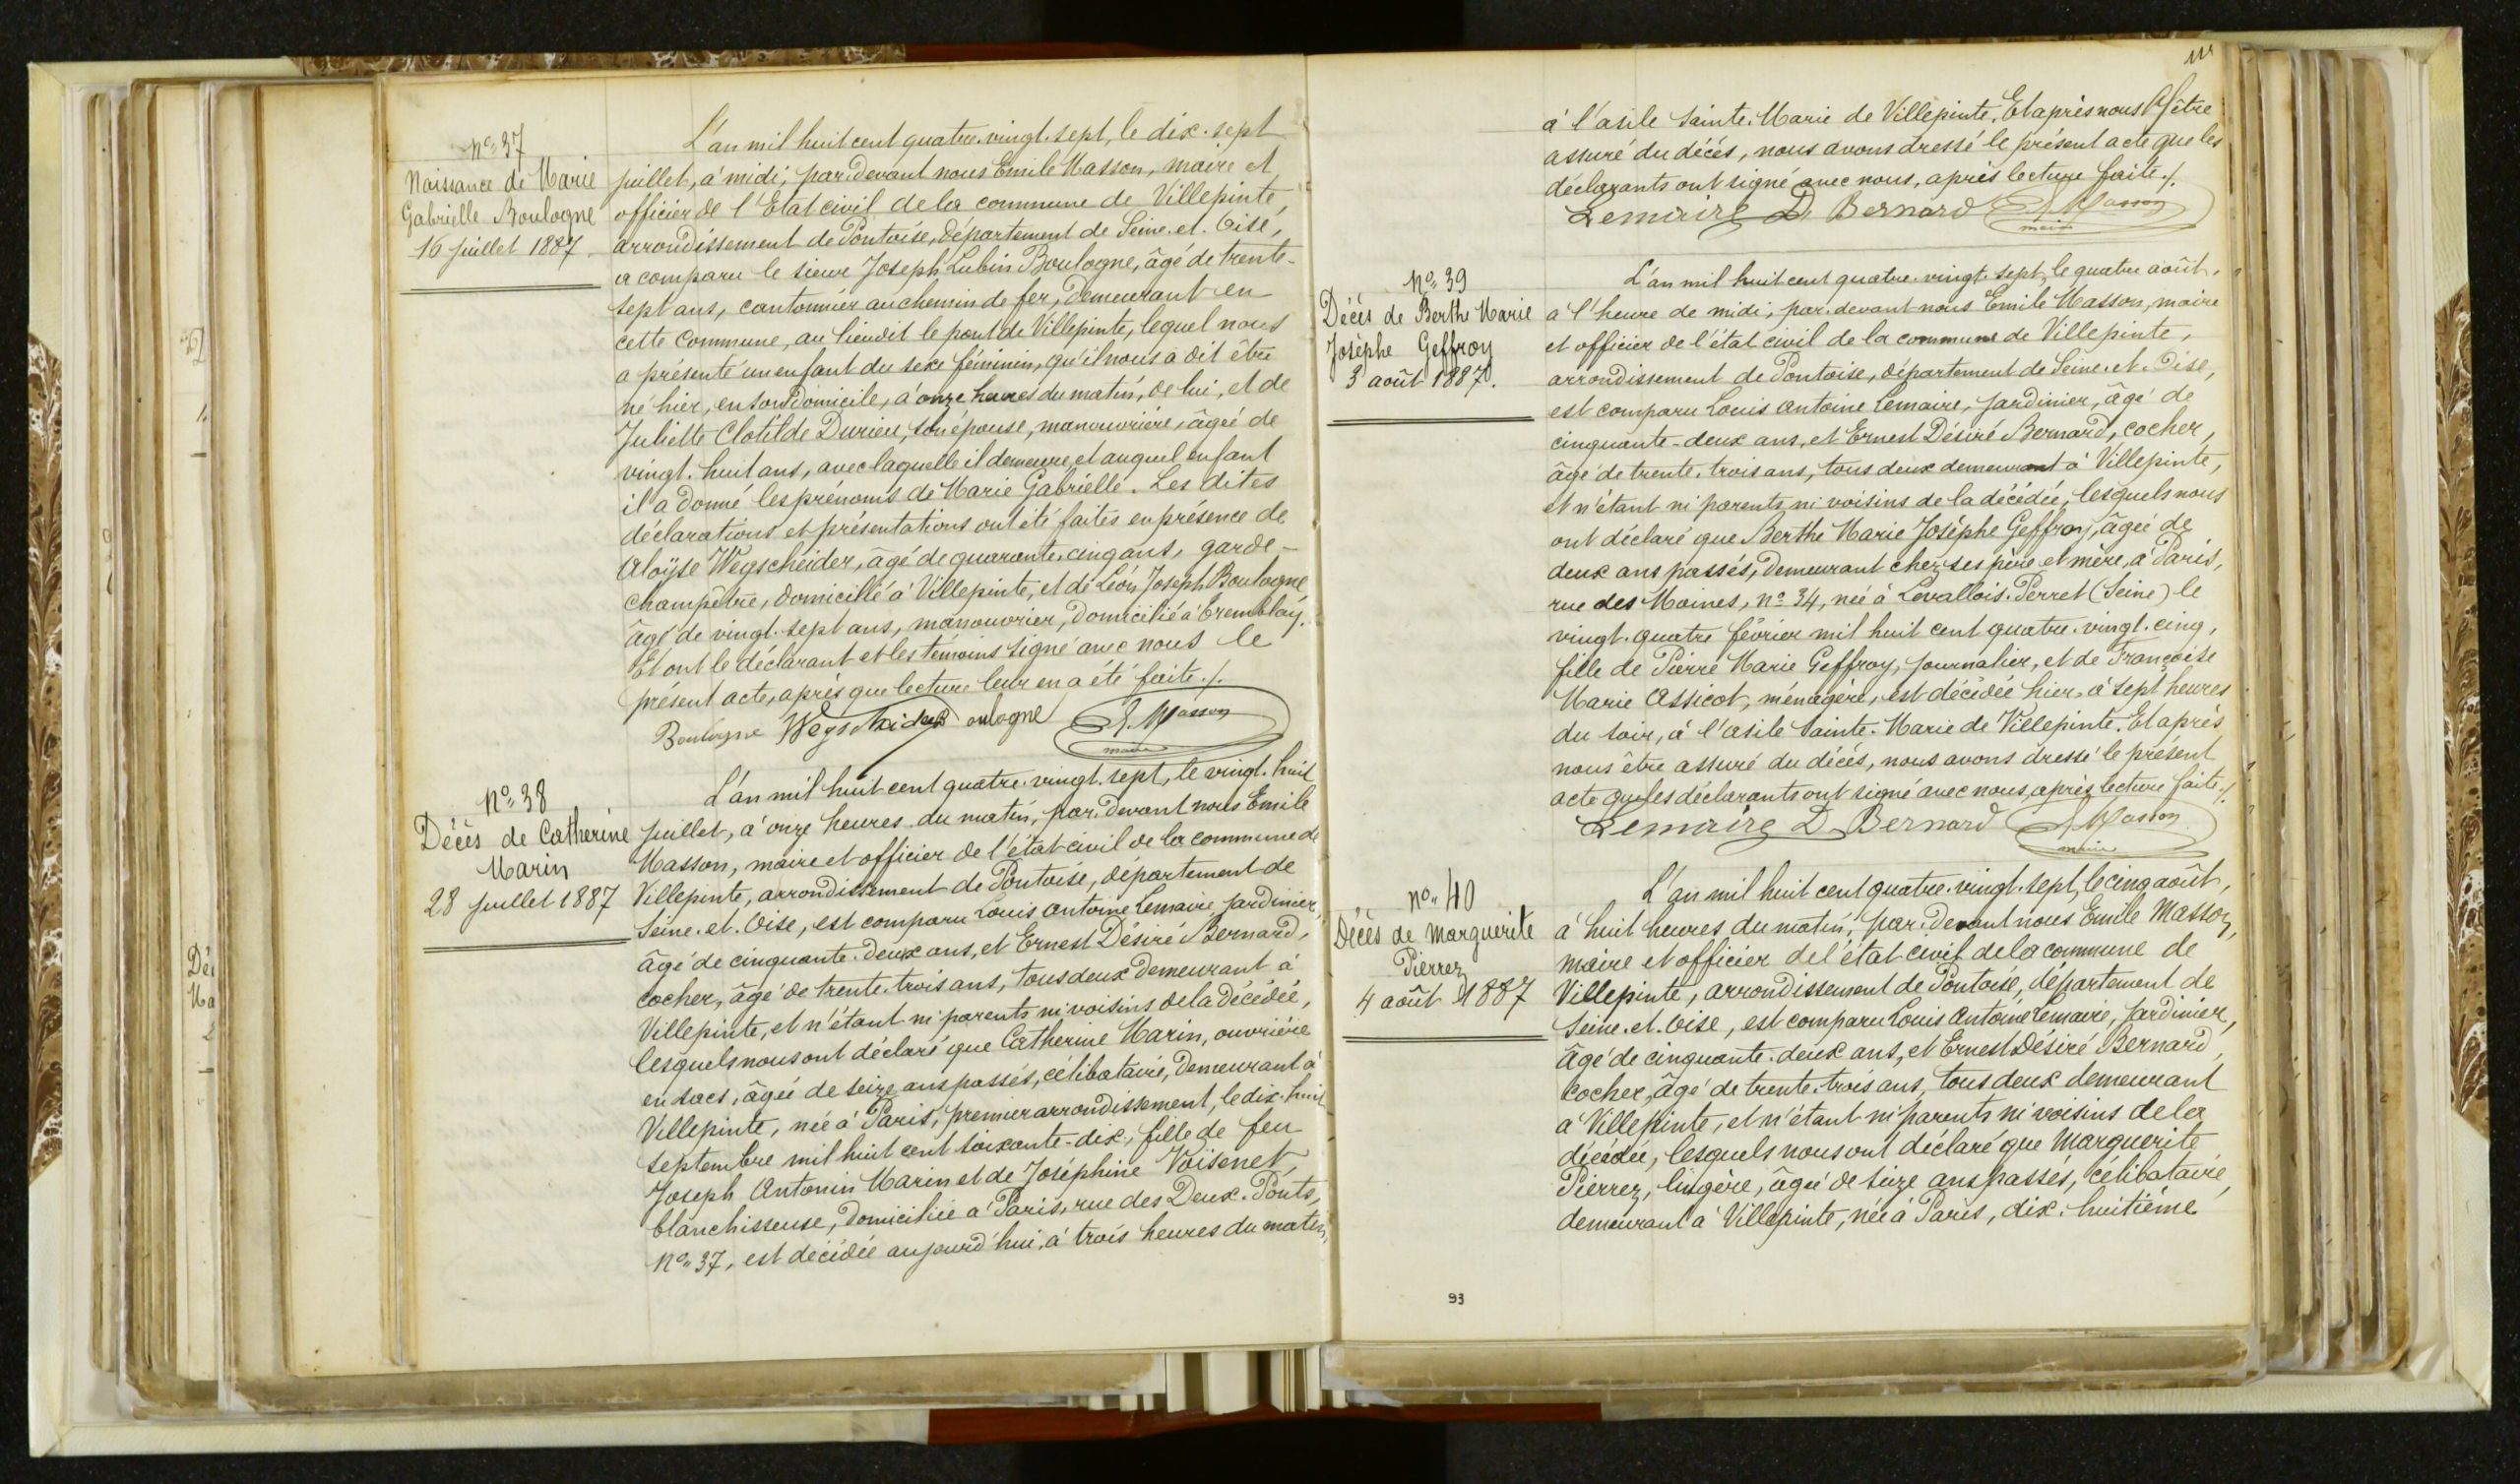 No 37
Naissance de Marie
Gabrielle Boulogne
16 juillet 1887
L'an mil huit cent quatre-vingt-sept, le dix-sept
juillet, à midi, par-devant nous Emile Masson, maire et
officier de l'Etat civil de la commune de Villepinte,
arrondissement de Pontoise, département de Seine-et-Oise,
a comparu le sieur Joseph Lubin Boulogne, âgé de trente-
sept ans, cantonnier au chemin de fer, demeurant en
cette commune, au lieudit le pont de Villepinte, lequel nous
a présenté un enfant du sexe féminin, qu'il nous a dit être
né hier, en son domicile, à onze heures du matin, de lui, et de
Juliette Clotilde Durieu, son épouse, manouvrière, âgée de
vingt-huit ans, avec laquelle il demeure, et auquel enfant
il a donné les prénoms de Marie Gabrielle. Les dites
déclarations et présentations ont été faites en présence de
Aloÿse Wegscheider, âgé de quarante-cinq ans, garde-
champêtre, domicilié à Villepinte, et de Léon Joseph Boulogne
âgé de vingt-sept ans, manouvrier, domicilié à Tremblay.
Et ont le déclarant et les témoins signé avec nous le
présent acte, après que lecture leur en a été faite ./.
Boulogne Wegscheider Boulogne E. Masson
maire
No 38
Décès de Catherine
Marin
28 juillet 1887
L'an mil huit cent quatre-vingt-sept, le vingt-huit
juillet, à onze heures du matin, par-devant nous Emile
Masson, maire et officier de l'état civil de la commune de
Villepinte, arrondissement de Pontoise, département de
Seine-et-Oise, est comparu Louis Antoine Lemaire jardinier,
âgé de cinquante-deux ans, et Ernest Désiré Bernard,
cocher, âgé de trente-trois ans, tous deux demeurant à
Villepinte, et n'étant ni parents ni voisins de la décédée,
lesquels nous ont déclaré que Catherine Marin, ouvrière
en sacs, âgée de seize ans passés, célibataire, demeurant à
Villepinte, née à Paris, premier arrondissement, le dix-huit
septembre mil huit cent soixante-dix, fille de feu
Joseph Antonin Marin et de Joséphine Voisenet,
blanchisseuse, domiciliée à Paris, rue des Deux-Ponts,
No 37, est décédée aujourd'hui, à trois heures du matin,
à l'asile Sainte-Marie de Villepinte. Et après nous être
assuré du décès, nous avons dressé le présent acte que les
déclarants ont signé avec nous, après lecture faite ./.
Lemaire D Bernard E. Masson
maire
No 39
Décès de Berthe Marie
Josèphe Geffroy
3 août 1887.
L'an mil huit cent quatre-vingt-sept, le quatre août,
à l'heure de midi, par-devant nous Emile Masson, maire
et officier de l'état civil de la commune de Villepinte,
arrondissement de Pontoise, département de Seine-et-Oise,
est comparu Louis Antoine Lemaire, jardinier, âgé de
cinquante-deux ans, et Ernest Désiré Bernard, cocher,
âgé de trente-trois ans, tous deux demeurant à Villepinte,
et n'étant ni parents ni voisins de la décédée, lesquels nous
ont déclaré que Berthe Marie Josèphe Geffroy, âgée de
deux ans passés, demeurant chez ses père et mère, à Paris,
rue des Moines, no 34, née à Levallois-Perret (Seine) le
vingt-quatre février mil huit cent quatre-vingt-cinq,
fille de Pierre Marie Geffroy, journalier, et de Françoise
Marie Assicot, ménagère, est décédée hier, à sept heures
du soir, à l'asile Sainte-Marie de Villepinte. Et après
nous être assuré du décès, nous avons dressé le présent
acte que les déclarants ont signé avec nous, après lecture faite ./.
Lemaire D Bernard E. Masson
maire
no 40
Décès de Marguerite
Pierrez
4 août 1887
L'an mil huit cent quatre-vingt-sept, le cinq août,
à huit heures du matin, par-devant nous Emile Masson,
maire et officier de l'état civil de la commune de
Villepinte, arrondissement de Pontoise, département de
Seine-et-Oise, est comparu Louis Antoine Lemaire, jardinier,
âgé de cinquante-deux ans, et Ernest Désiré Bernard,
cocher, âgé de trente-trois ans, tous deux demeurant
à Villepinte, et n'étant ni parents ni voisins de la
décédée, lesquels nous ont déclaré que Marguerite
Pierrez, lingère, âgée de seize ans passés, célibataire,
demeurant à Villepinte, née à Paris, dix-huitième
93